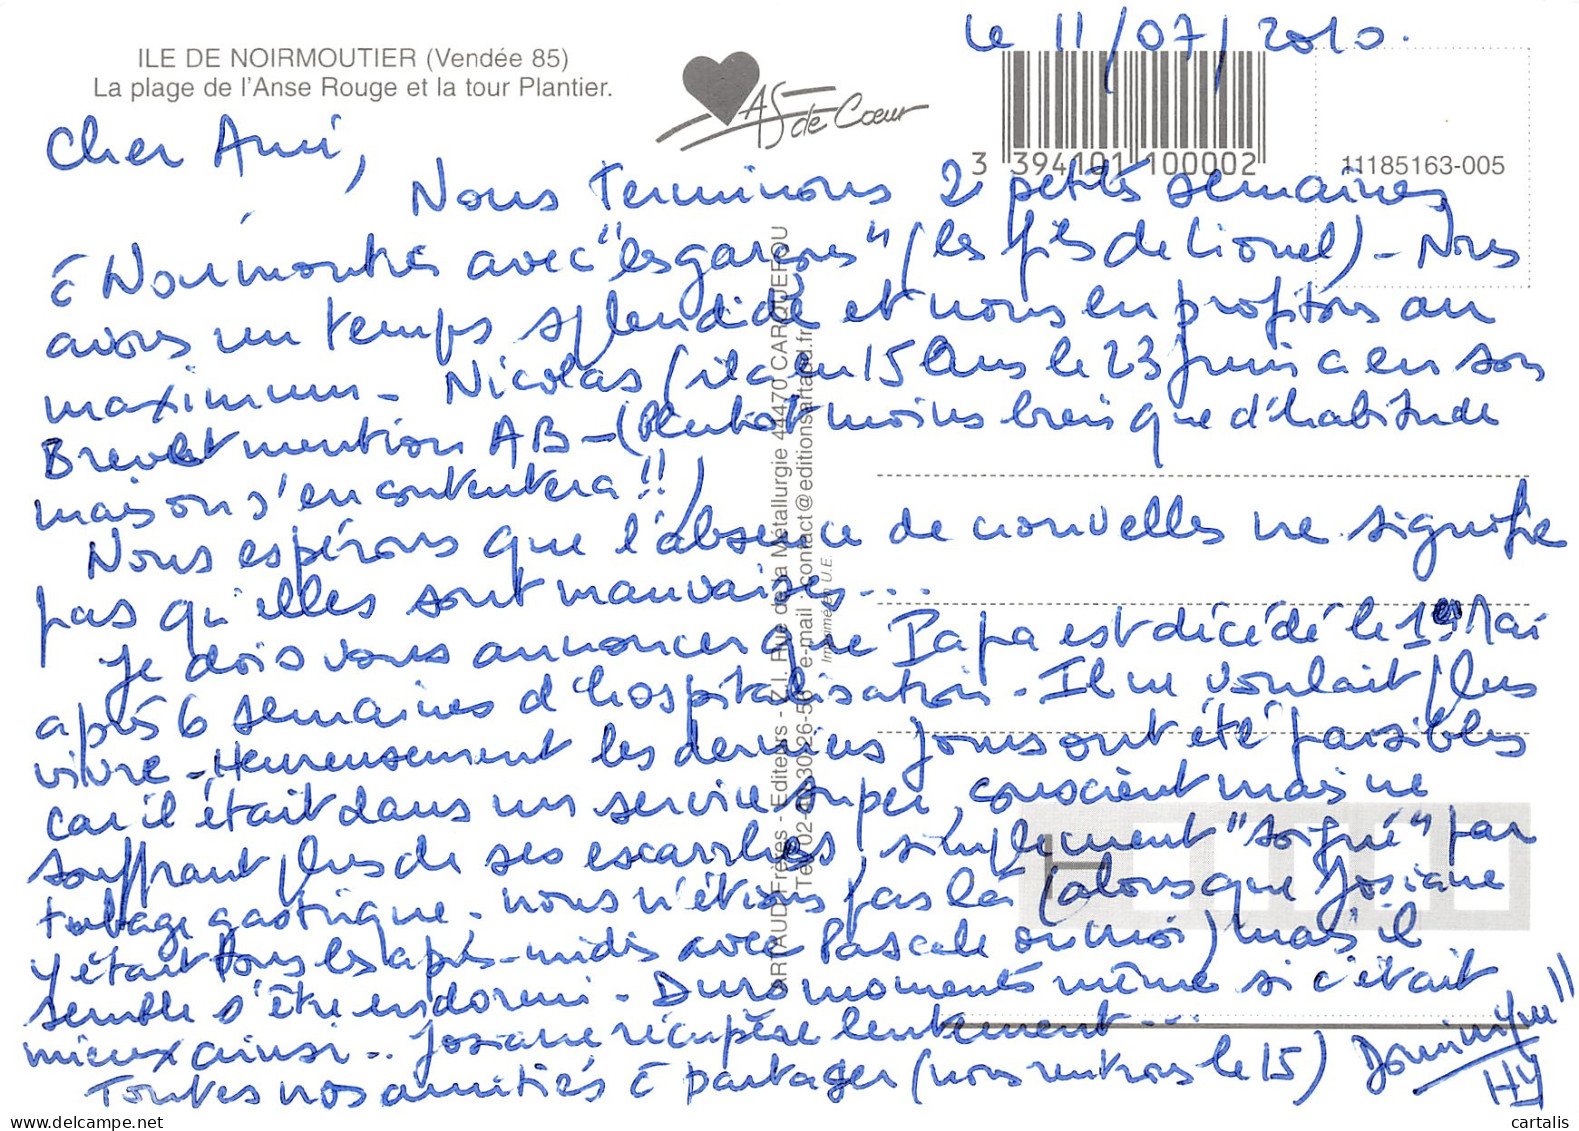 le 11/07/2010.
ILE DE NOIRMOUTIER (Vendée 85)
La plage de l'Anse Rouge et la tour Plantier.
AS de Cœur
3 394101 100002
11185163-005
Cher Ami,
Nous terminons 2 petites semaines
à Noirmoutier avec "les garçons" (les fils de Lionel) - Nous
avons un temps splendide et nous en profitons au
maximum - Nicolas (il a eu 15 ans le 23 juin a eu son
Brevet mention AB - (Plutôt moins bien que d'habitude
mais on s'en contentera !!)
Nous espérons que l'absence de nouvelles ne signifie
pas qu'elles sont mauvaises...
Je dois vous annoncer que Papa est décédé le 1er Mai
après 6 semaines d'hospitalisation - Il ne voulait plus
vivre - Heureusement les derniers jours ont été paisibles
car il était dans un service super, conscient mais ne
souffrant plus de ses escarrhes, simplement "soigné" par
tubage gastrique - nous n'étions pas là (alors que Josiane
y était tous les après-midis avec Pascale ou moi) mais il
semble s'être endormi - Durs moments même si c'était
mieux ainsi.. Josiane récupère lentement...
Toutes nos amitiés à partager (nous rentrons le 15) Dominique
ARTAUD Frères - Editeurs - Z.I. Rue de la Métallurgie 44470 CARQUEFOU
e-mail : contact@editionsartaud.fr
Imprimé en U.E.
cartalis